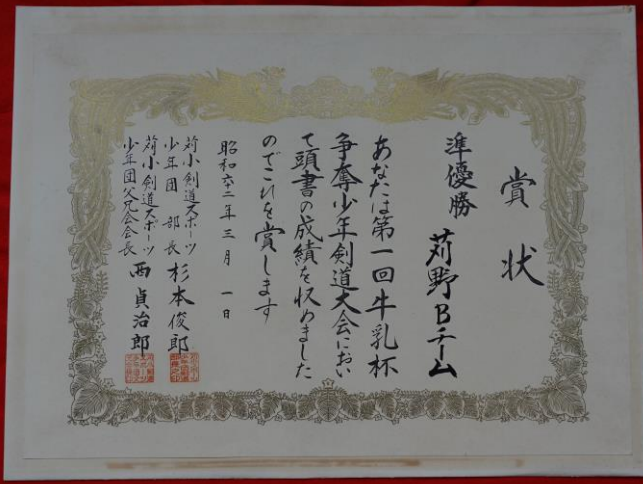 賞状
準優勝 苅野Bチーム
あなたは第一回牛乳杯
争奪少年剣道大会におい
て頭書の成績を収めました
のでこれを賞します
昭和六二年三月一日
苅小剣道スポーツ
少年団 部長 杉本俊郎
苅小剣道スポーツ
少年団父兄会会長 西貞治郎